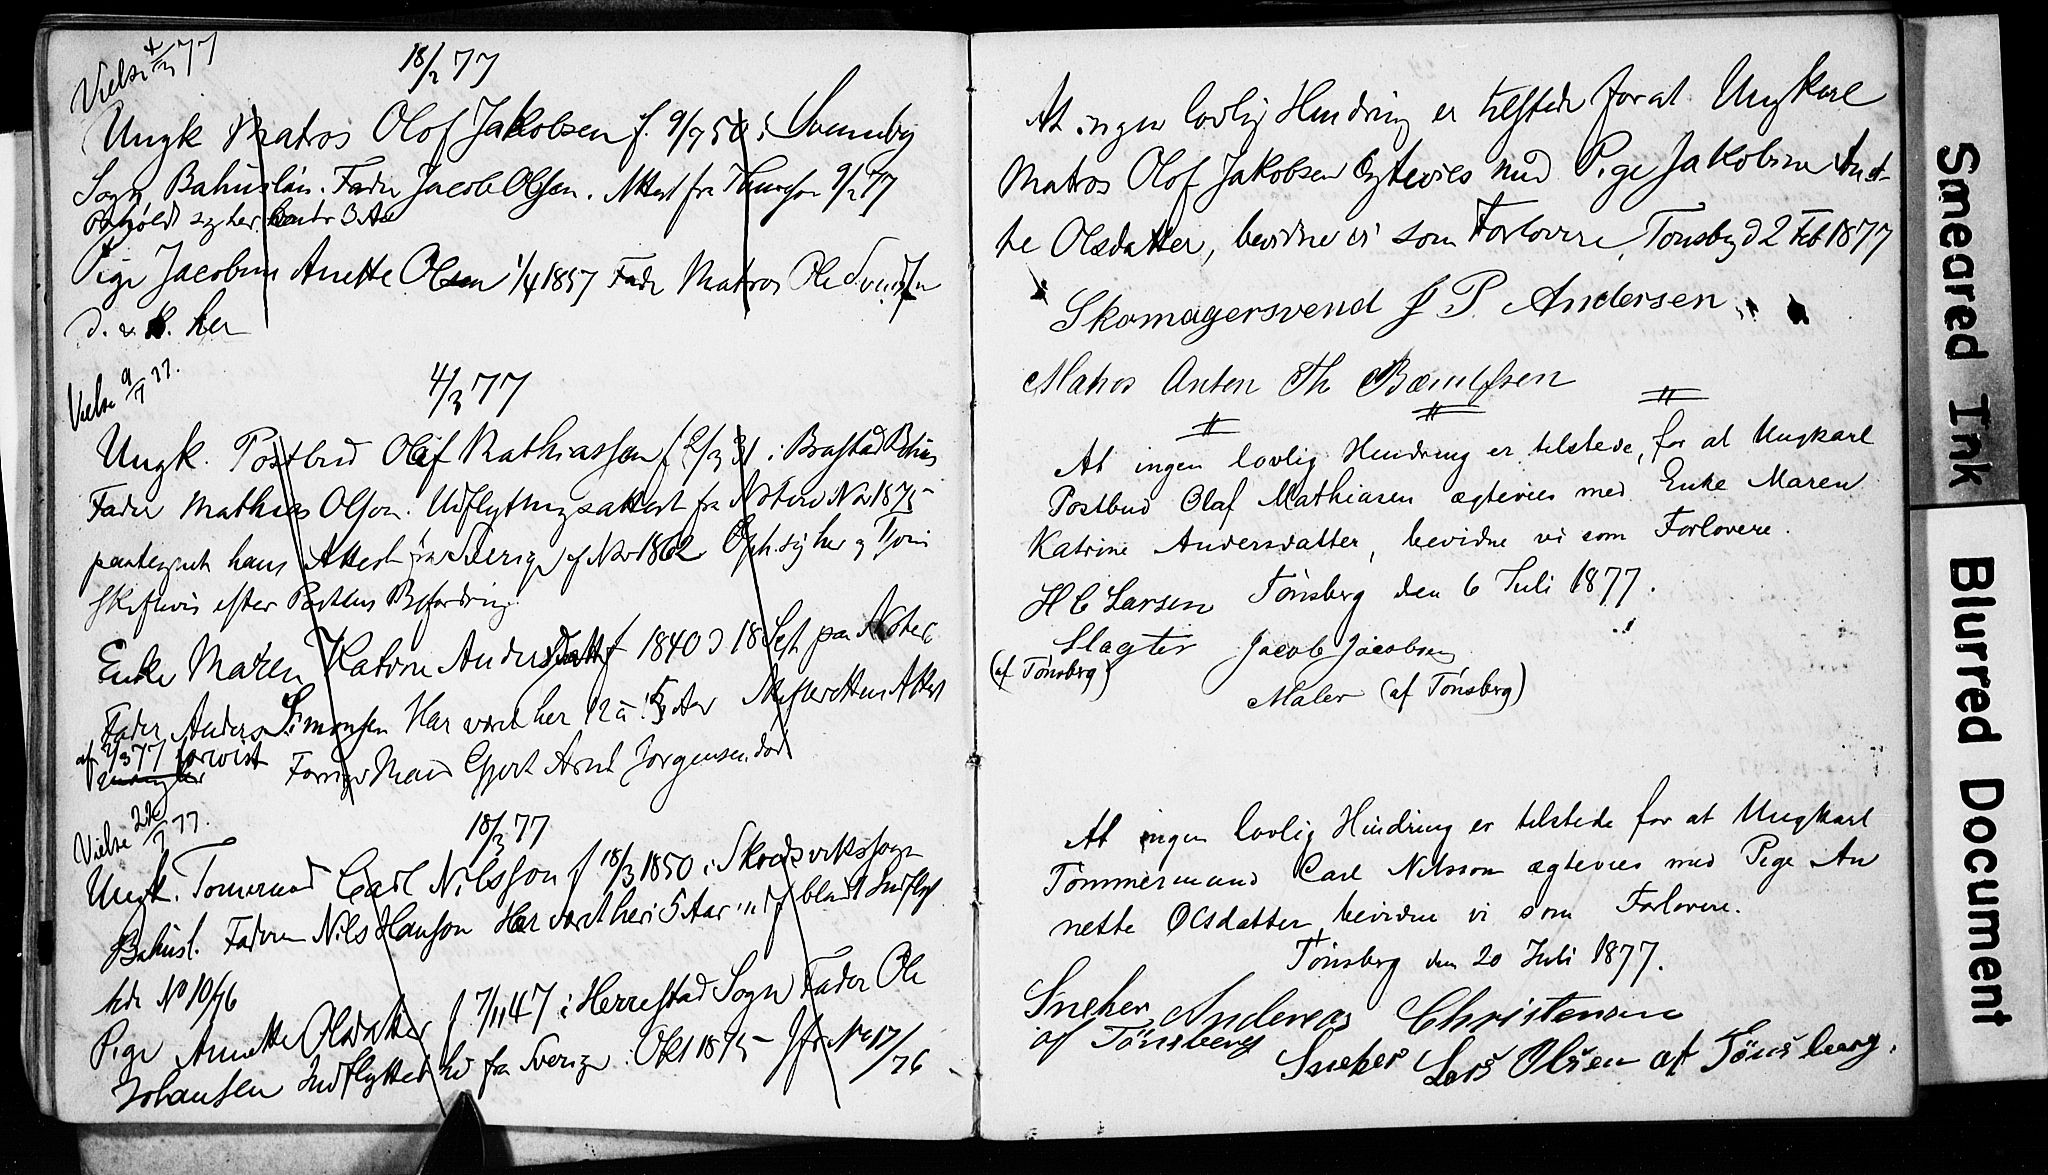 Vielse 4/3 77
18/2 77
Ungk Matros Olof Jakobsen f. 9/7 50 i Svenneby
Sogn Bahuslän. Fader Jacob Olsen. Attest fra 9/2 77
Ophøldt sig her 3 Aar
Pige Jacobine Anette Olsen 1/4 1857 Fader Matros Ole Svendsen
D. & K. her
Vielse 9/7 77.
4/3 77
Ungk. Postbud Olaf Mathiassen f 2/3 31 i Brastad Bahus
Fader Mathias Olson. Udflytningsattest fra Nøterø Nov 1875
paategnet hans Attest fra Sverige af Nov 1862 Oph. sig her og Tjøme
skiftevis efter Postens Befordring
Enke Maren Katrine Andersdatter f 1840 D 18 Sept paa Nøterø
Fader Anders Simonsen Har været her 12 à 15 Aar Skifterettens Attest
af 2/3 77 forevist Forrige Mand Gjert Arnt Jørgensen død
Vielse 22/7 77.
18/3 77
Ungk. Tømmermand Carl Nilsson f 18/3 1850 i Skredsvikssogn
Bahusl. Faderen Nils Hanson Har været her i 5 Aar indf blandt Indflyt
tede No 10/76
Pige Annette Olsdatter f 7/11 47 i Herrestad Sogn Fader Ole
Johansen Indflyttet hid fra Sverige Okt 1875 Jfr No 17/76
At ingen lovlig Hindring er tilstede for at Ungkarl
Matros Olof Jakobsen Egtevies med Pige Jakobine Anet-
te Olsdatter, bevidne vi som Forlovere, Tønsberg d 2 Feb 1877
Skomagersvend J P. Andersen
Matros Anton Th Berntsen
At ingen lovlig Hindring er tilstede, for at Ungkarl
Postbud Olaf Mathiasen ægtevies med Enke Maren
Katrine Andersdatter, bevidne vi som Forlovere.
Tønsberg den 6 Juli 1877.
H C Larsen
Slagter Jacob Jacobsen
(af Tønsberg) Maler (af Tønsberg)
At ingen lovlig Hindring er tilstede for at Ungkarl
Tømmermand Carl Nilsson ægtevies med Pige An
nette Olsdatter, bevidne vi som Forlovere.
Tønsberg den 20 Juli 1877.
Sneker Andereas Christensen
af Tönsberg
Sneker Lars Olsen af Tönsberg.
Smeared Ink
Blurred Document